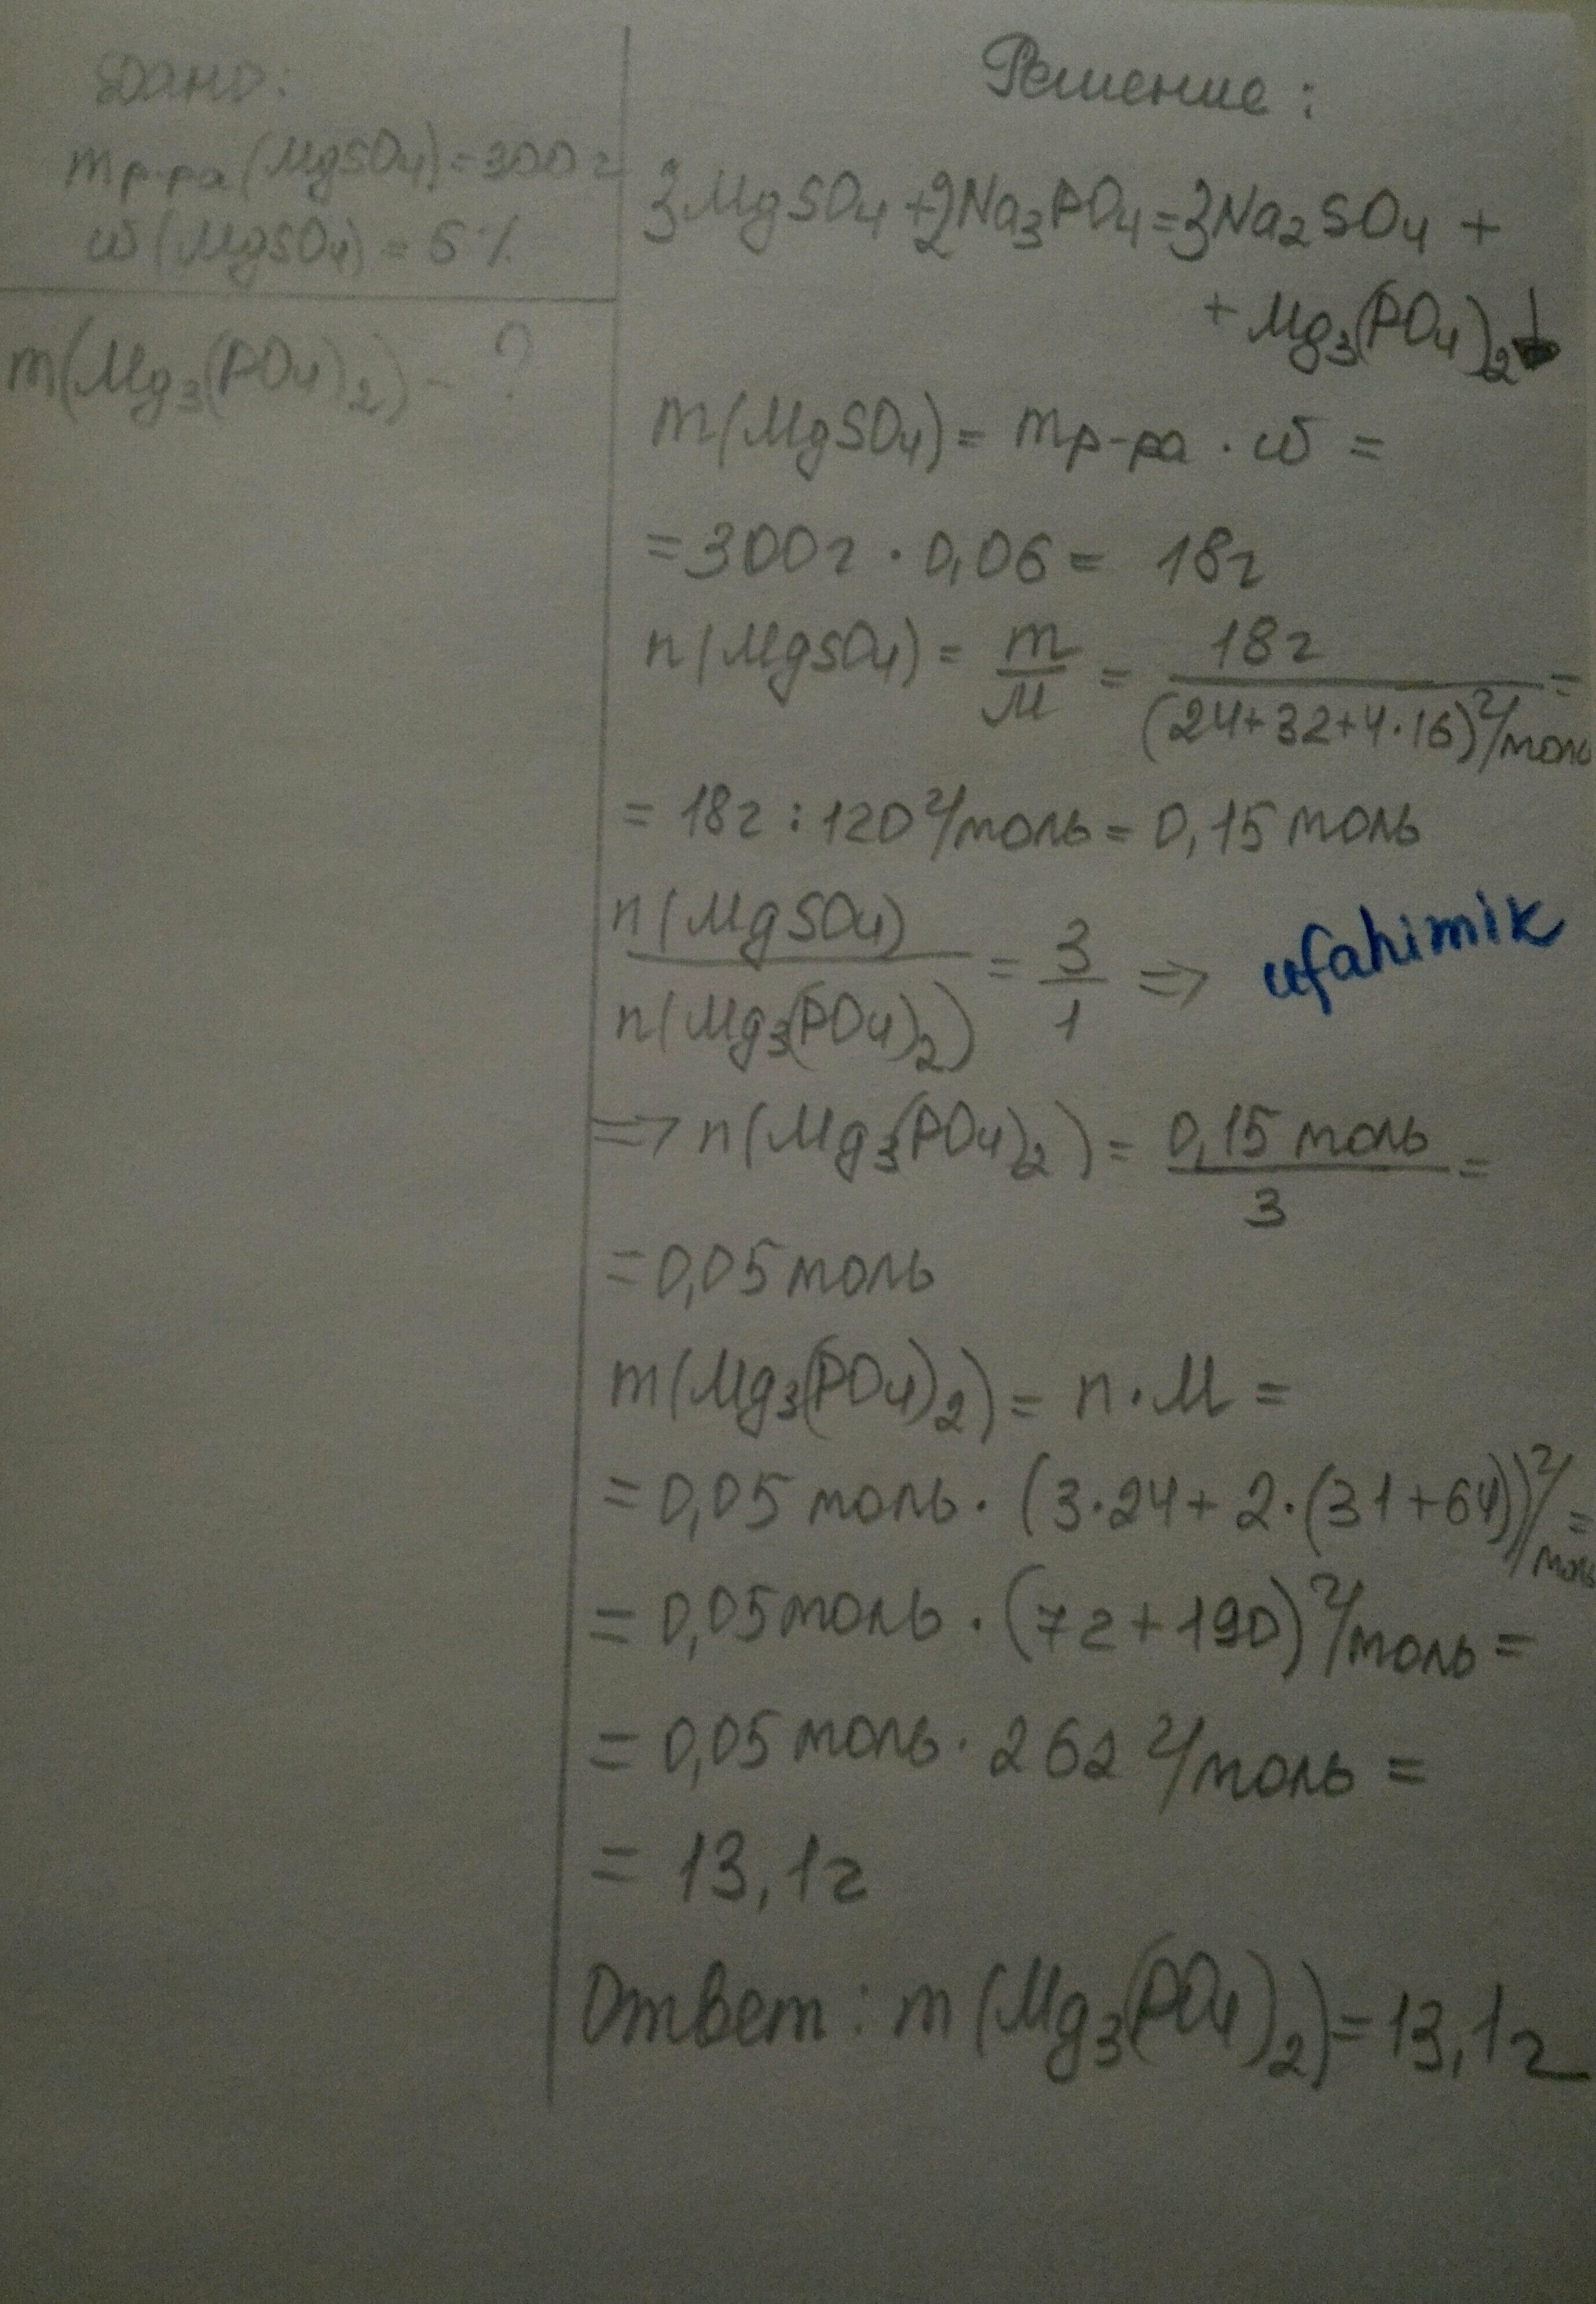 Дано:
mр-ра(MgSO4)=300г
ω(MgSO4)=6%
m(Mg3(PO4)2) - ?
Решение:
3MgSO4+2Na3PO4=3Na2SO4 +
+ Mg3(PO4)2↓
m(MgSO4)= mр-ра · ω =
=300г · 0,06= 18г
n(MgSO4)= m/M = 18г/(24+32+4·16)г/моль =
= 18г : 120г/моль= 0,15 моль
n(MgSO4)/n(Mg3(PO4)2) = 3/1 => ufahimik
=> n(Mg3(PO4)2)= 0,15 моль/3 =
=0,05 моль
m(Mg3(PO4)2)= n·M =
=0,05 моль·(3·24+2·(31+64))г/моль =
=0,05 моль·(72+190)г/моль =
=0,05 моль·262 г/моль =
= 13,1г
Ответ: m(Mg3(PO4)2)=13,1г